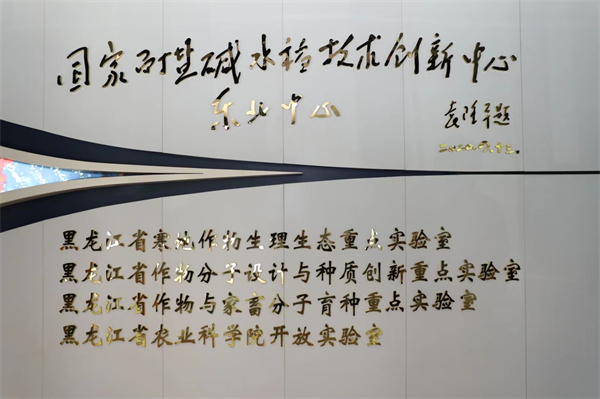 国家耐盐碱水稻技术创新中心
东北中心
袁隆平题
黑龙江省寒地作物生理生态重点实验室
黑龙江省作物分子设计与种质创新重点实验室
黑龙江省作物与家畜分子育种重点实验室
黑龙江省农业科学院开放实验室